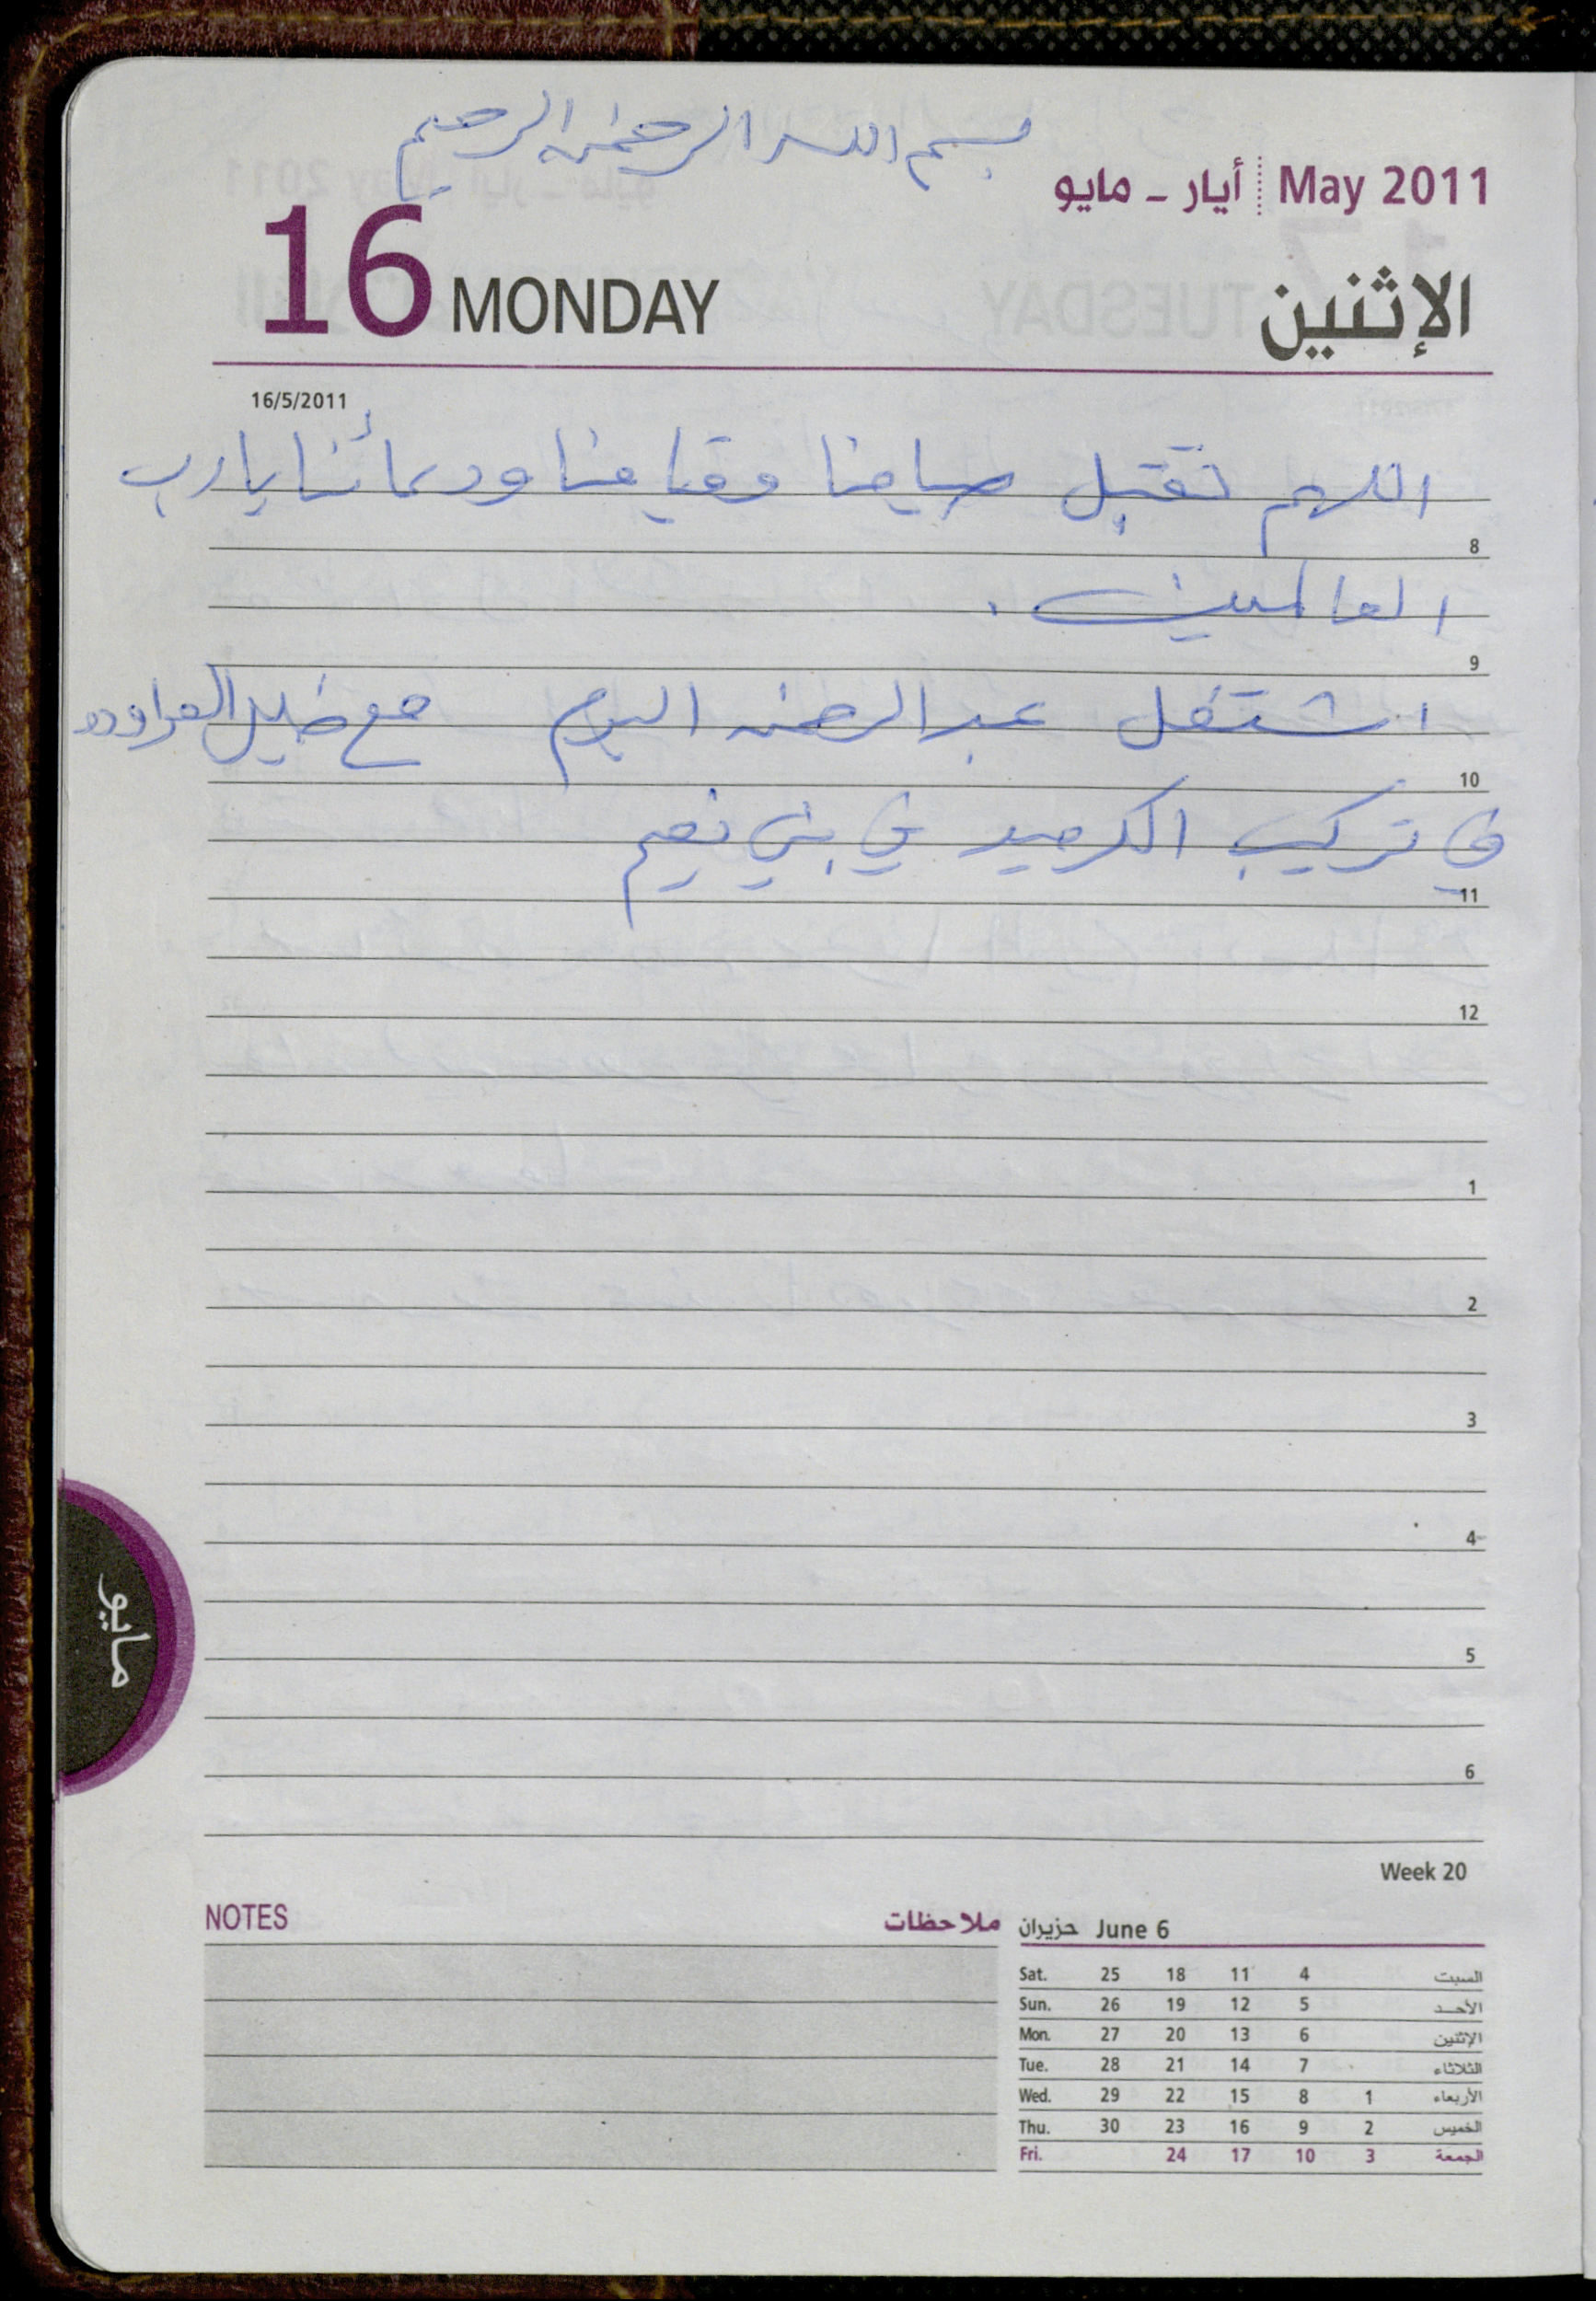 بسم الله الرحمن الرحيم
أيار - مايو May 2011
16 MONDAY الإثنين
16/5/2011
اللهم تقبل صيامنا وقيامنا ودعائنا يا رب
8
العالمين .
9
اشتغل عبد الرحمن اليوم مع خليل
10
في تركيب الكرميد في بني نعيم
11
12
1
2
3
4
5
6
مايو
Week 20
NOTES ملاحظات
حزيران June 6
Sat. 25 18 11 4 السبت
Sun. 26 19 12 5 الأحد
Mon. 27 20 13 6 الإثنين
Tue. 28 21 14 7 الثلاثاء
Wed. 29 22 15 8 1 الأربعاء
Thu. 30 23 16 9 2 الخميس
Fri. 24 17 10 3 الجمعة